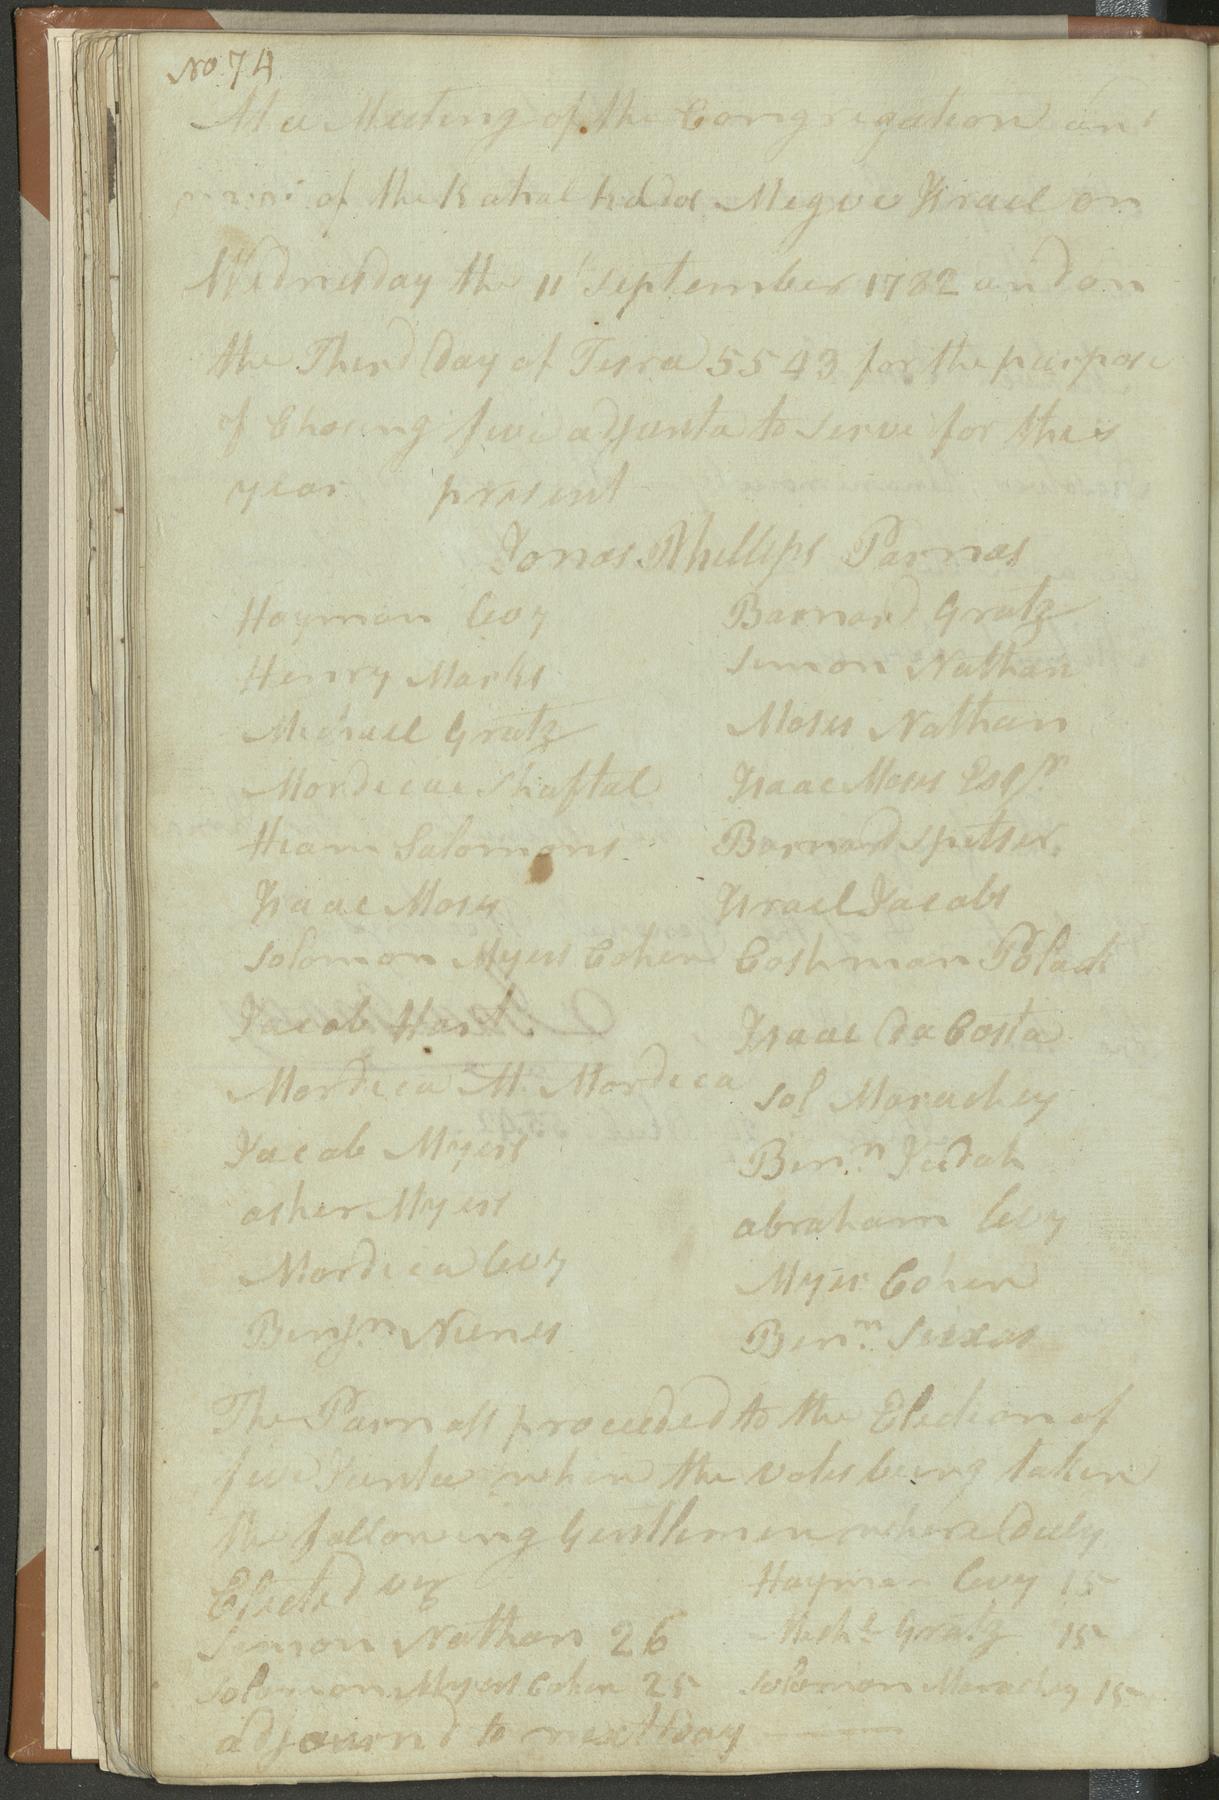 No 74
At a Meeting of the Congregation
of the Kahal kados Megve Israel on
Wednesday the 11t September 1782 and on
the Third day of Tisra 5543 for the purpose
of Chosing five adjunta to serve for this
year present
Jonas Phillips Parnas
Hayman Levy Barnard Gratz
Henry Marks Simon Nathan
Michael Gratz Moses Nathan
Mordecai Shaftal Isaac Moses Esqr
Hiam Salomons Barnard Spitser
Isaac Moses Israel Jacobs
Solomon Myers Cohen Coshman Polack
Jacob Hart Isaac Da Costa
Mordica M. Mordica Sol Marachey
Jacob Myers Benn. Judah
asher Myers abraham Levy
Mordica Levy Myer Cohen
Benjn. Nunes Benn. Seixas
The Parnass proceeded to the Election of
five Junta when the votes being taken
the following Gentlemen where Duly
Elected viz Hayman Levy 15
Simon Nathan 26 Michl Gratz 15
Solomon Myers Cohen 25 Solomon Marachey 15
adjournd to next day